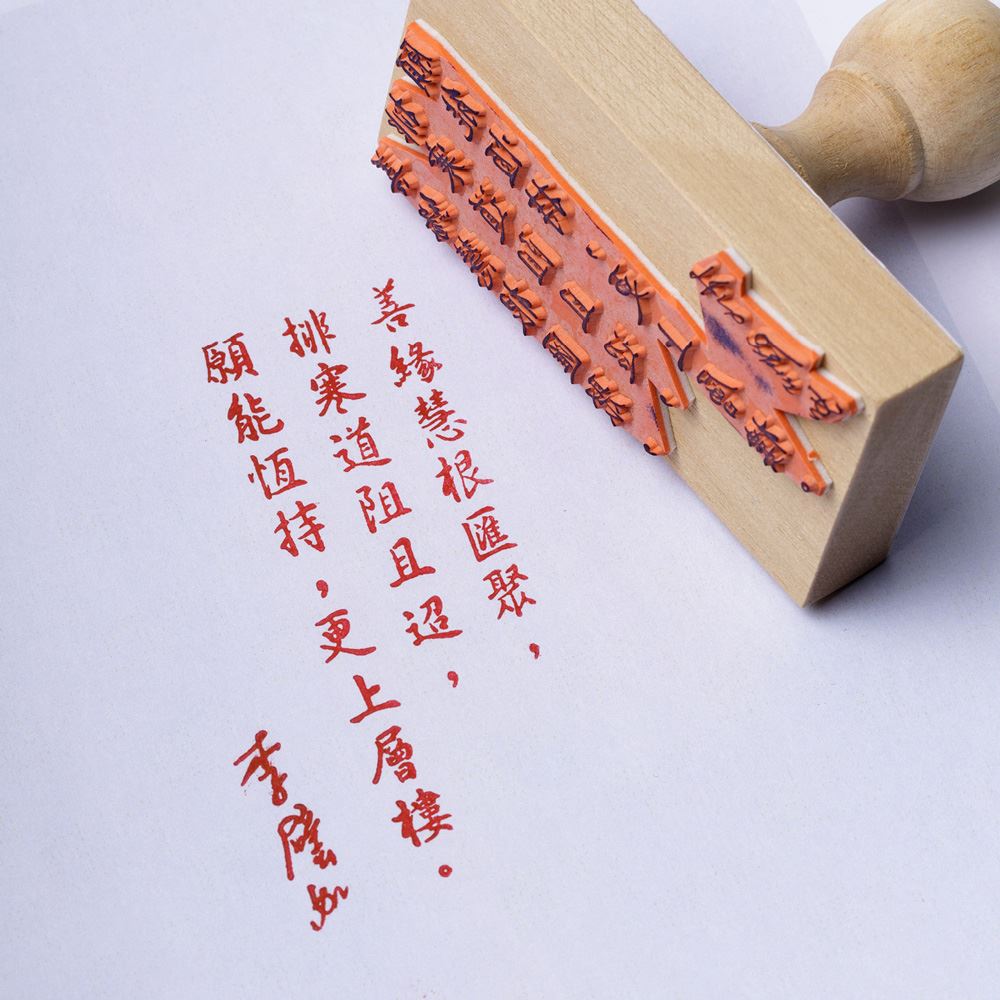 善緣慧根匯聚，
排寒道阻且迢，
願能恆持，更上層樓。
李璧如